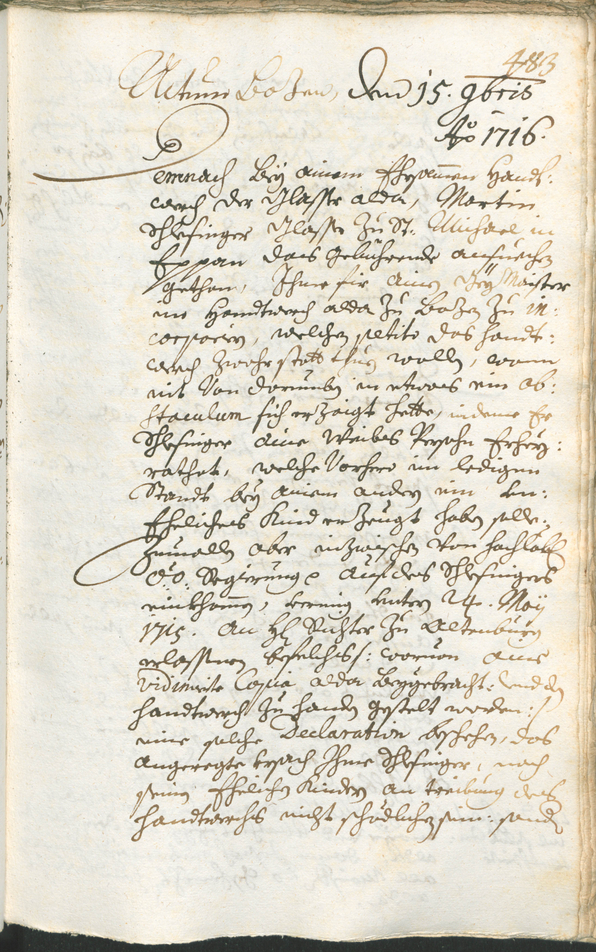 483
Actum Bozen, den 15. 9bris
Ao 1716.
Demnach bey ainem Ehrsammen Handt:
werch der Glasser alda, Martin
Schlesinger Glasser zu St. Michael in
Eppan das gebührende ansuechen
gethan, Ihme für ainen Mitmaister
im Handtwerch alda zu Bozen zu in:
corporiern, welchen petito das handt:
werch zwahr statt thuen wollen, wann
nit von darumben in etwas ein ob:
staculum sich erzaigt hette, indeme Er
Schlesinger aine Weibs Persohn Erheÿ:
rathet, welche Vorhero im ledigen
Standt beÿ ainem andern ein Un:
Ehelichens Kind erzeugt haben solle,
Zumallen aber inzwischen von hochlobl:
OÖ. Regierung auf des Schlesingers
einkhomen, vernug unterm 24. Maÿ
1715. An H: Richter zu Altenburg
erlassnen befelchs /: wovon aine
Vidimirte Copia alda beÿgebracht: und dem
handtwerch zu handen gestelt worden: /
eine solche Declaration beschehen, das
angeregte ursach Ihme Schlesinger, noch
seinen Ehelichen Kindern an treibung des
handtwerchs nicht schödlichen sein: sond